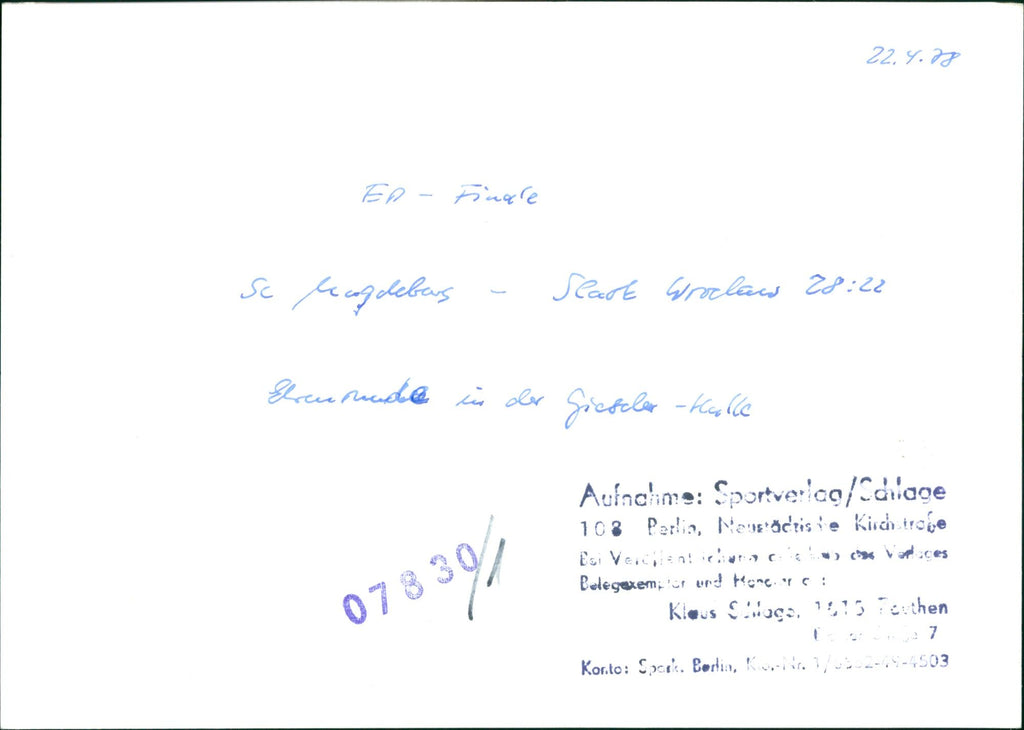 22.4.78
EP - Finale
SC Magdeburg - Slask Wroclaw 28:22
Ehrenrunde in der Gieseler-Halle
Aufnahme: Sportverlag/Schlage
108 Berlin, Neustädtische Kirchstraße
Bei Veröffentlichung des Verlages
Belegexemplar und Honorar
Klaus Schlage, 1615 Zeuthen
7
Konto: Spark. Berlin, Kto.-Nr.
07830/1